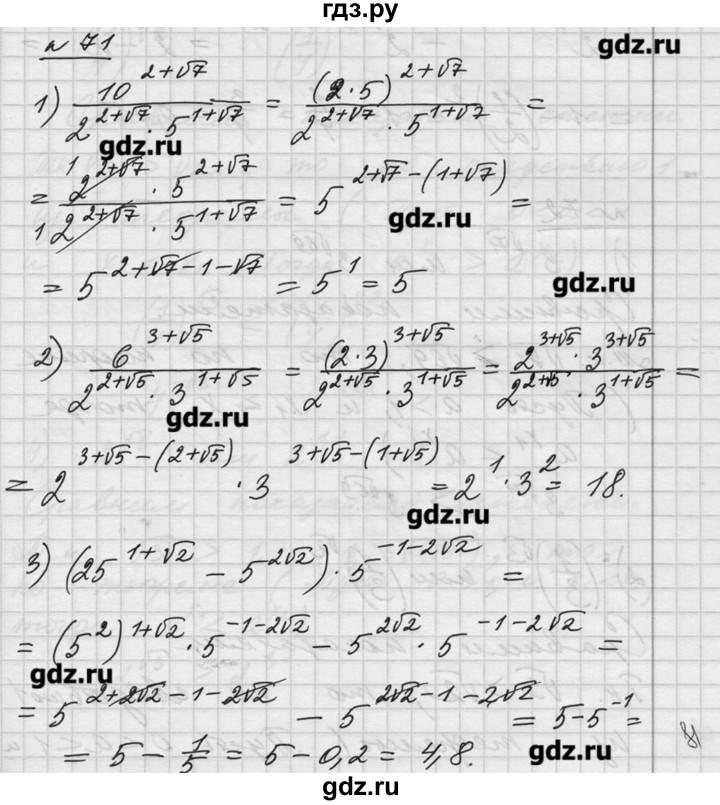 гдз.ру
gdz.ru
№ 71
1) 10^(2+√7) / (2^(2+√7) · 5^(1+√7)) = (2·5)^(2+√7) / (2^(2+√7) · 5^(1+√7)) =
gdz.ru
= 2^(2+√7) · 5^(2+√7) / (2^(2+√7) · 5^(1+√7)) = 5^(2+√7-(1+√7)) =
gdz.ru
= 5^(2+√7-1-√7) = 5^1 = 5
gdz.ru
2) 6^(3+√5) / (2^(2+√5) · 3^(1+√5)) = (2·3)^(3+√5) / (2^(2+√5) · 3^(1+√5)) = 2^(3+√5) · 3^(3+√5) / (2^(2+√5) · 3^(1+√5)) =
gdz.ru
= 2^(3+√5-(2+√5)) · 3^(3+√5-(1+√5)) = 2^1 · 3^2 = 18.
gdz.ru
3) (25^(1+√2) - 5^(2√2)) · 5^(-1-2√2) =
= (5^2)^(1+√2) · 5^(-1-2√2) - 5^(2√2) · 5^(-1-2√2) =
gdz.ru
= 5^(2+2√2-1-2√2) - 5^(2√2-1-2√2) = 5-5^(-1) =
= 5 - 1/5 = 5 - 0,2 = 4,8.
gdz.ru
gdz.ru